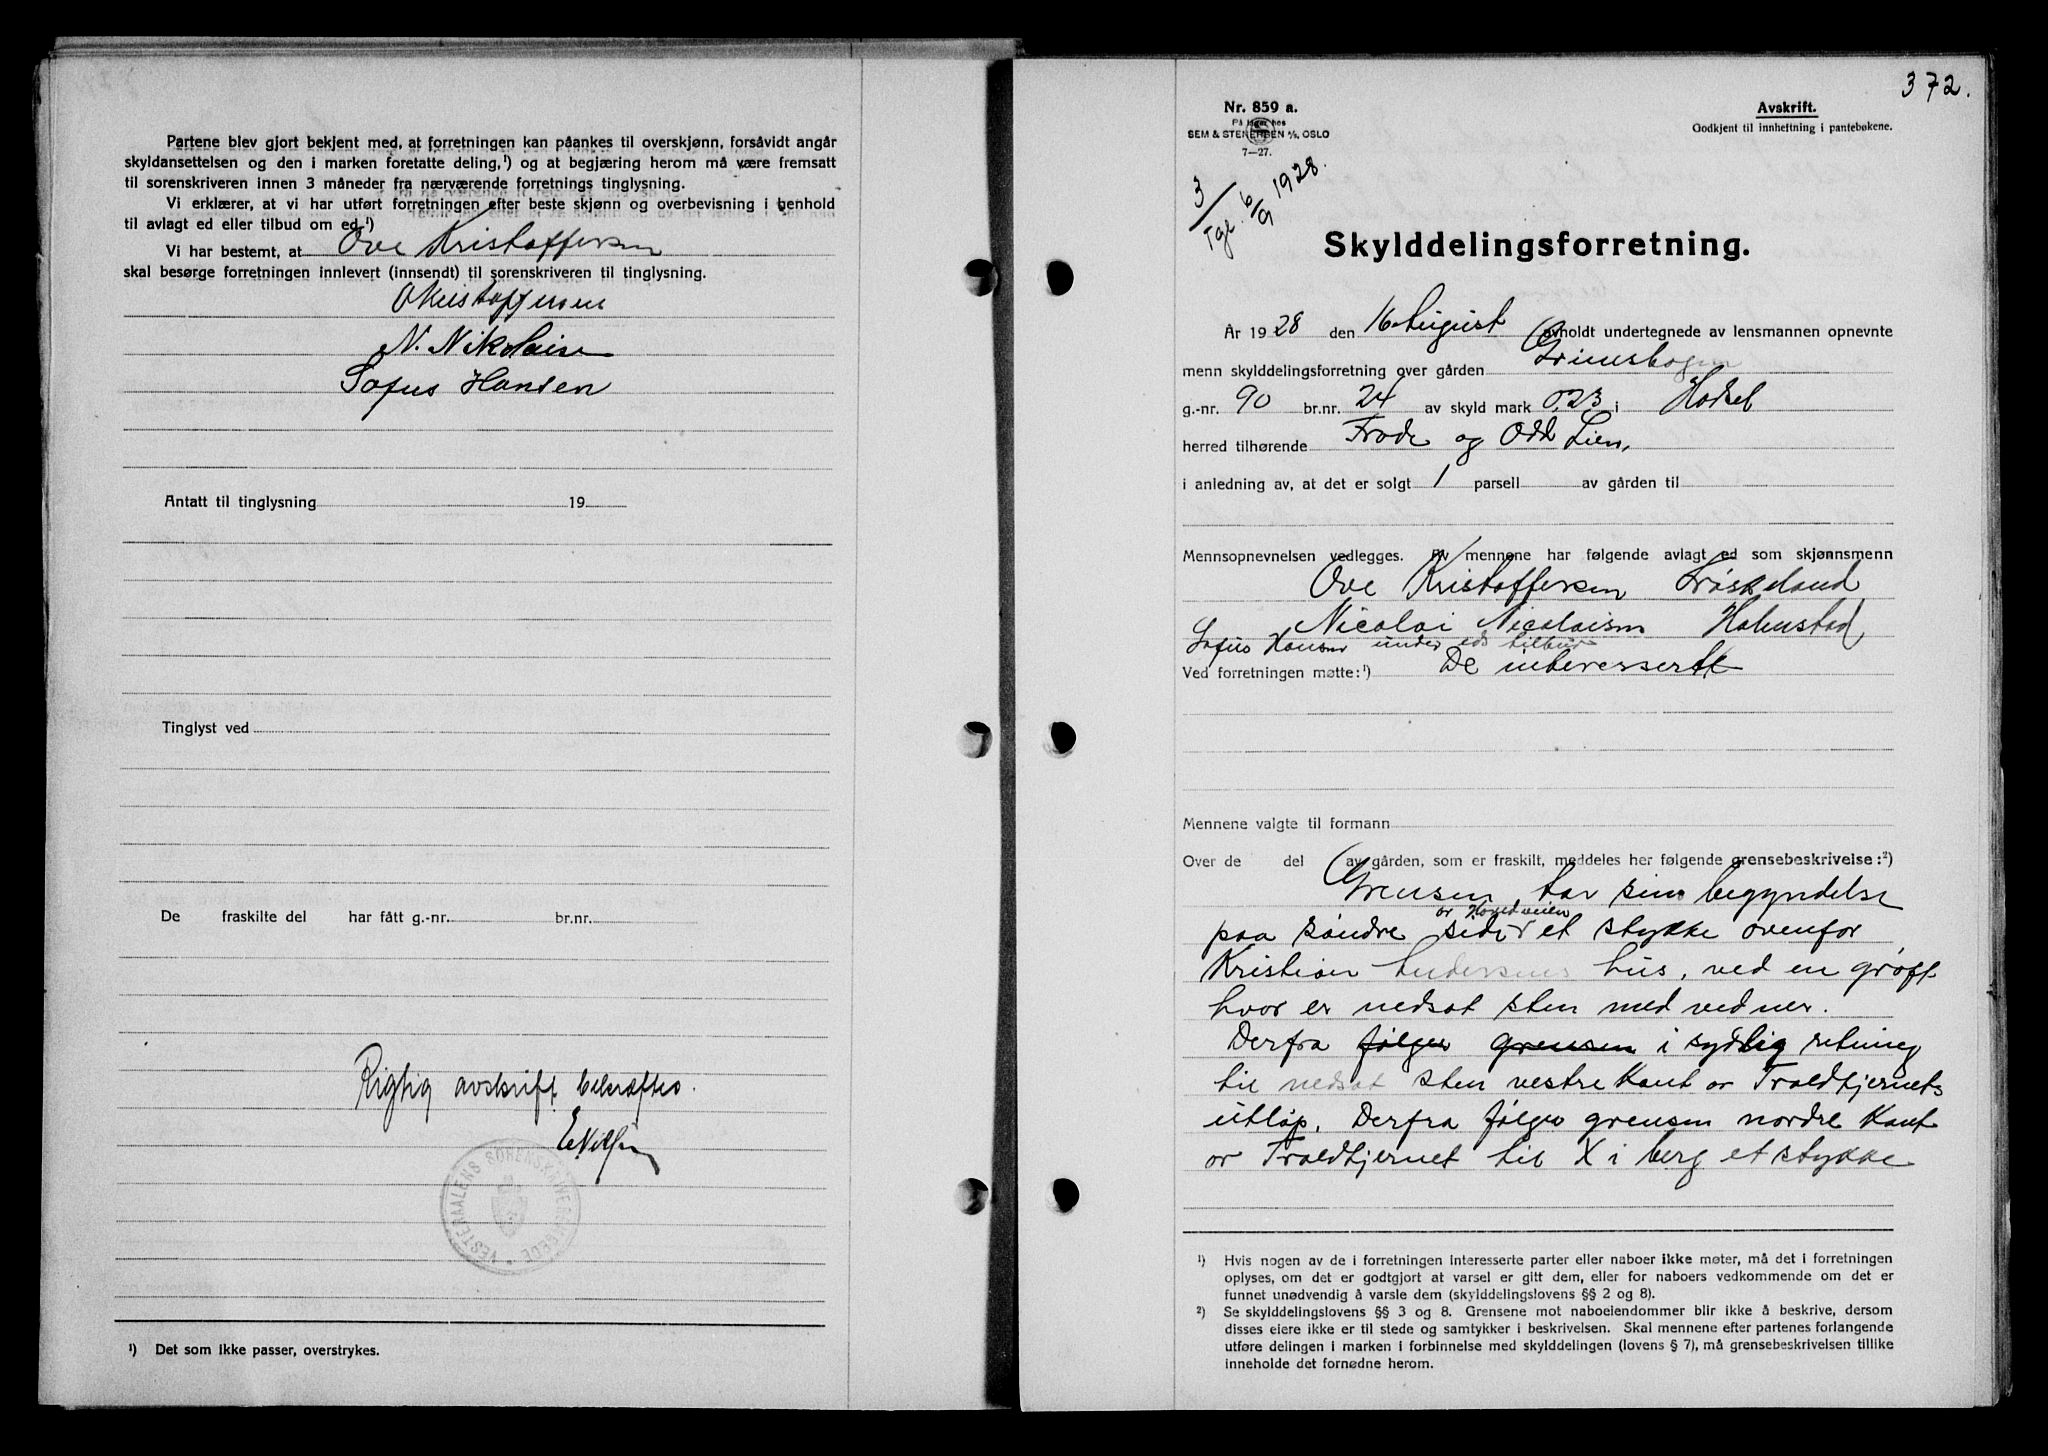 Partene blev gjort bekjent med, at forretningen kan påankes til overskjønn, forsåvidt angår
skyldansettelsen og den i marken foretatte deling,¹) og at begjæring herom må være fremsatt
til sorenskriveren innen 3 måneder fra nærværende forretnings tinglysning.
Vi erklærer, at vi har utført forretningen efter beste skjønn og overbevisning i henhold
til avlagt ed eller tilbud om ed.¹)
Vi har bestemt, at Ove Kristoffersen
skal besørge forretningen innlevert (innsendt) til sorenskriveren til tinglysning.
O Kristoffersen
N. Nikolaisen
Sofus Hansen
Antatt til tinglysning 19
Tinglyst ved
De fraskilte del har fått g.-nr. br.nr.
Rigtig avskrift bekræftes.
VESTERAALENS SORENSKRIVEREMBEDE
¹) Det som ikke passer, overstrykes.
372.
Nr. 859 a.
På lager hos
SEM & STENERSEN A/S, OSLO
7—27.
Avskrift.
Godkjent til innheftning i pantebøkene.
3/
Tgl. 6/9 1928.
Skylddelingsforretning.
År 1928 den 16 August avholdt undertegnede av lensmannen opnevnte
menn skylddelingsforretning over gården Grimsbogen
g.-nr. 90 br.nr. 24 av skyld mark 0,23 i Hadsel
herred tilhørende Frode og Odd Lien,
i anledning av, at det er solgt 1 parsell av gården til
Mennsopnevnelsen vedlegges. Av mennene har følgende avlagt ed som skjønnsmenn
Ove Kristoffersen Frøskeland
Nicolai Nicolaisen Holmstad
Sofus Hansen under eds tilbud
Ved forretningen møtte:¹) De interesserte
Mennene valgte til formann
Over de del av gården, som er fraskilt, meddeles her følgende grensebeskrivelse:²)
Grensen tar sin begyndelse
paa søndre side av Hovedveien et stykke ovenfor
Kristian Andersens hus, ved en grøft
hvor er nedsat sten med vedner.
Derfra følger grensen i sydlig retning
til nedsat sten vestre Kant av Troldtjernets
utløp. Derfra følger grensen nordre Kant
av Troldtjernet til X i berg et stykke
¹) Hvis nogen av de i forretningen interesserte parter eller naboer ikke møter, må det i forretningen
oplyses, om det er godtgjort at varsel er gitt dem, eller for naboers vedkommende om det er
funnet unødvendig å varsle dem (skylddelingslovens §§ 2 og 8).
²) Se skylddelingslovens §§ 3 og 8. Grensene mot naboeiendommer blir ikke å beskrive, dersom
disses eiere ikke er til stede og samtykker i beskrivelsen. Skal mennene efter partenes forlangende
utføre delingen i marken i forbinnelse med skylddelingen (lovens § 7), må grensebeskrivelsen tillike
inneholde det fornødne herom.